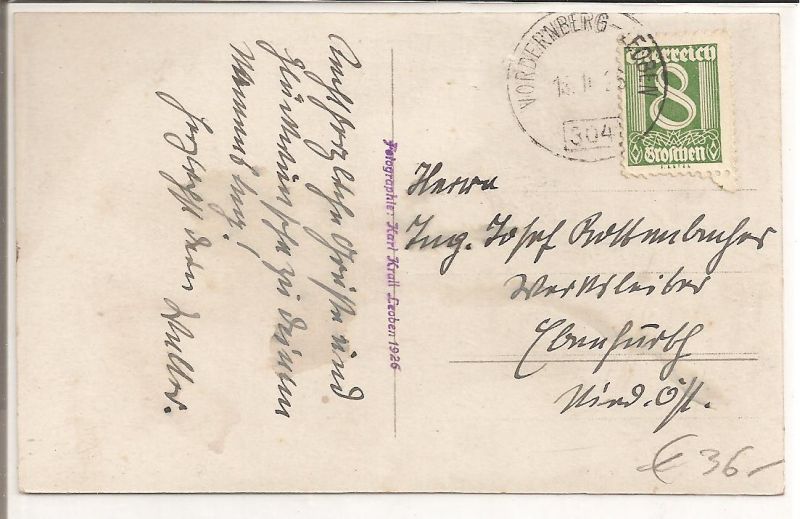 Recht herzliche Grüße und
Glückwünsche zu deinem
Namenstag!
Herzlichst dein Walter.
Fotographie: Karl Krall Leoben 1926
VORDERNBERG-LEOBEN
304
Österreich
8
Groschen
Herrn
Ing. Josef Rottenbacher
Werksleiter
Ebenfurth
Nied. Öst.
€ 36-